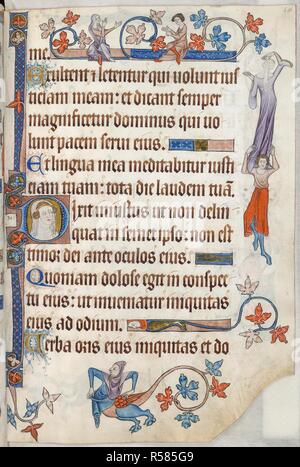 me.
Exultent ⁊ letentur qui uolunt ius
ticiam meam: et dicant semper
magnificetur dominus qui uo
lunt pacem serui eius.
Et lingua mea meditabitur iusti
ciam tuam: tota die laudem tuā.
Dixit iniustus ut non delin
quat in semet ipso: non est
timor dei ante oculos eius.
Quoniam dolose egit in conspe
tu eius: ut inueniatur iniquitas
eius ad odium.
Uerba oris eius iniquitas et do
alamy
Image ID: R585G9
www.alamy.com